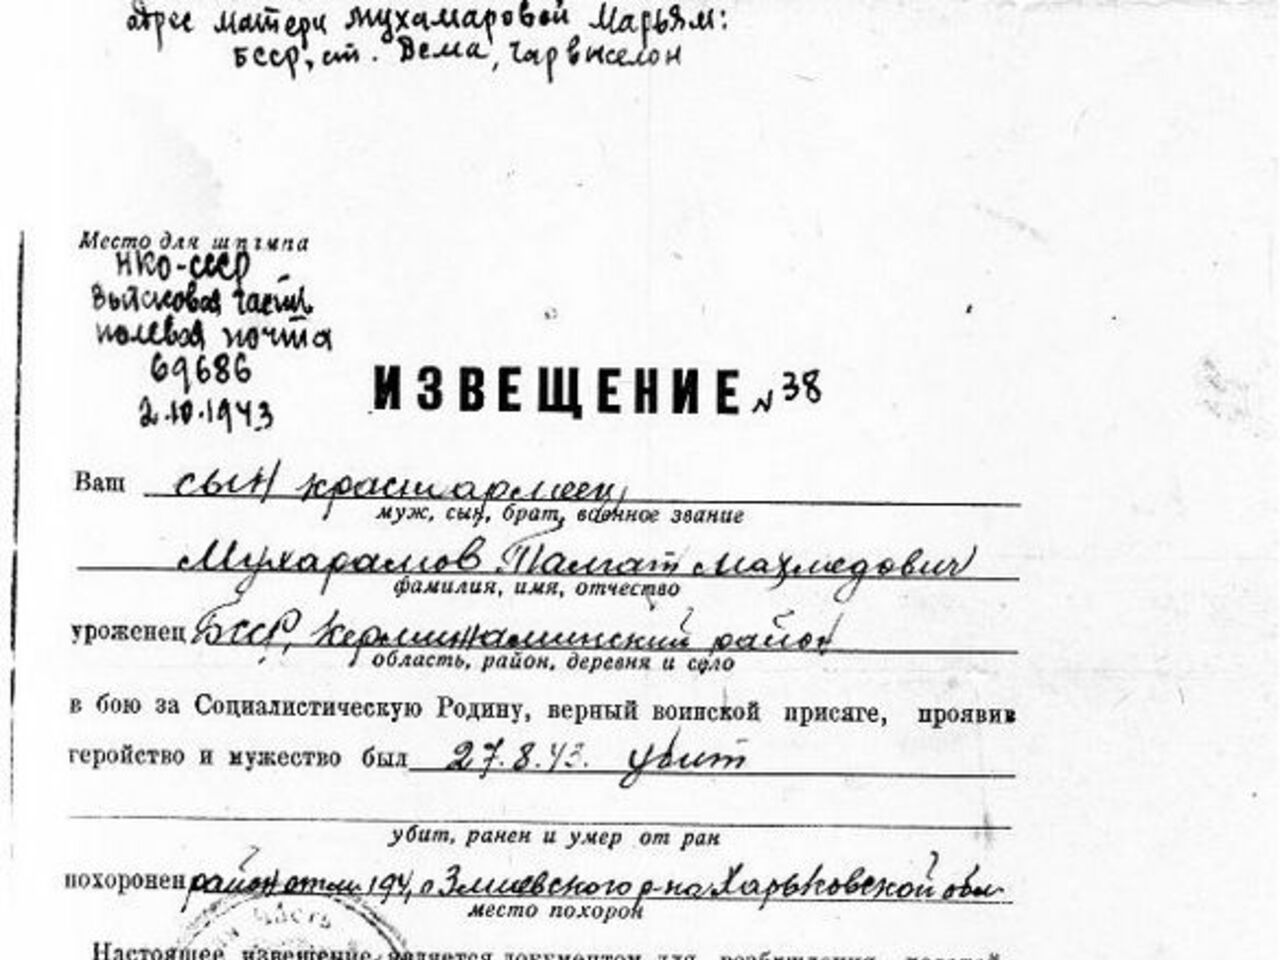 адрес матери Мухамаровой Марьям:
БССР, ст. Дема, Чар выселон
Место для штампа
НКО-СССР
Войсковая часть
полевая почта
69686
2.10.1943
ИЗВЕЩЕНИЕ N 38
Ваш сын красноармеец
муж, сын, брат, военное звание
Мухарамов Талгат Махмедович
фамилия, имя, отчество
уроженец БССР, район
область, район, деревня и село
в бою за Социалистическую Родину, верный воинской присяге, проявив
геройство и мужество был 27.8.43. убит
убит, ранен и умер от ран
похоронен район отм 194, 0 Змиевского р-на Харьковской обл
место похорон
часть
Настоящее извещение является документом для возбуждения